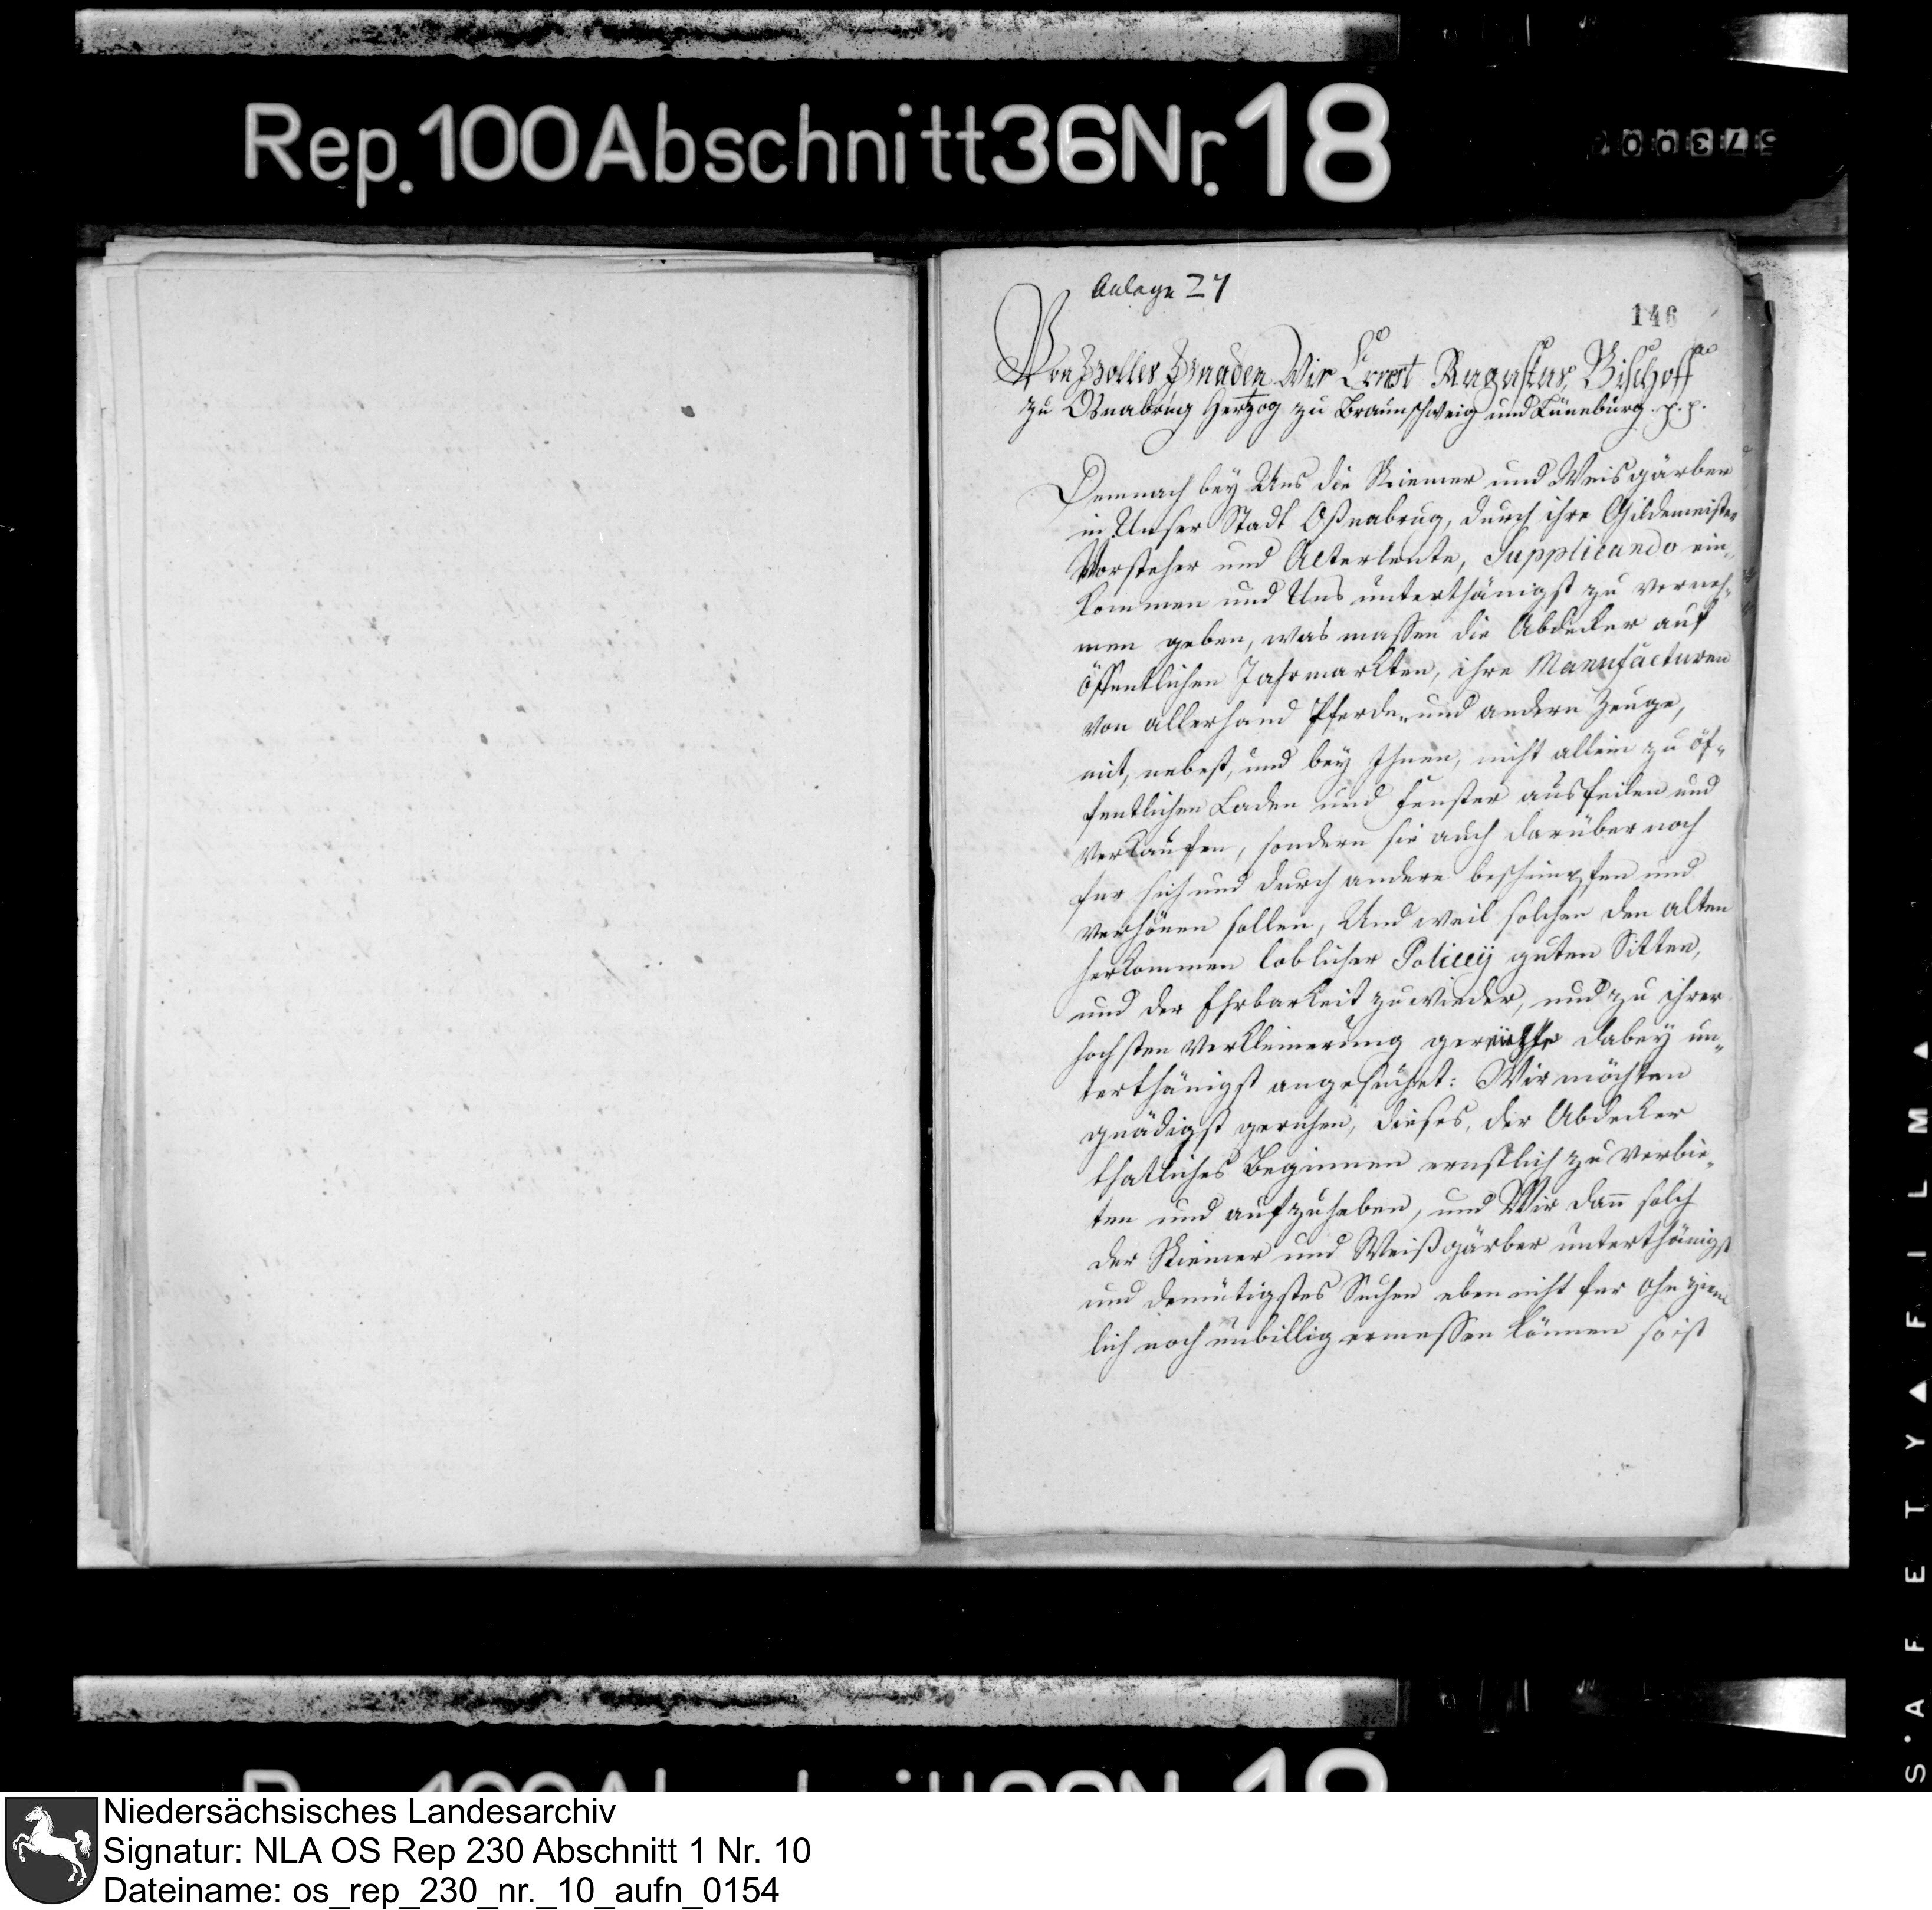 Rep. 100 Abschnitt 36 Nr. 18
Anlage 27
146
Von Gottes Gnaden Wir Ernst Augustus, Bischoff
zu Osnabrüg Hertzog zu Braunschweig und Lüneburg p. p.
Demnach bey Uns die Riemer und Weisgärber
in Unser Stadt Oßnabrug, durch ihre Gildemeister
Vorsteher und Alterleute, Supplicando ein„
kommen und Uns unterthänigst zu verneh„
men geben, was massen die Abdecker auf
öffentlichen Jahrmarkten, ihre Manufacturen
von allerhand Pferde„ und andern Zeuge,
mit, nebest, und bey Ihnen, nicht allein zu öf„
fentlichen Laden und Fenster ausfeilen und
verkaufen, sondern sie auch darüber noch
fur sich und durch andere beschimpfen und
verhönen sollen, Und weil solches den alten
herkommen loblicher Policeÿ guten Sitten,
und der Ehrbarkeit zuwieder, und zu ihrer
hochsten Verkleinerung dabey un„
terthänigst angesuchet: Wir möchten
gnädigst geruhen, dieses, der Abdecker
thatliches Beginnen ernstlich zu verbie„
ten und aufzuheben, und Wir dann solch
der Riemer und Weißgärber unterthänigst
und demütigstes Suchen eben nicht fur ohnziem
lich noch unbillig ermessen können so ist
SAFETY FILM
Niedersächsisches Landesarchiv
Signatur: NLA OS Rep 230 Abschnitt 1 Nr. 10
Dateiname: os_rep_230_nr._10_aufn_0154